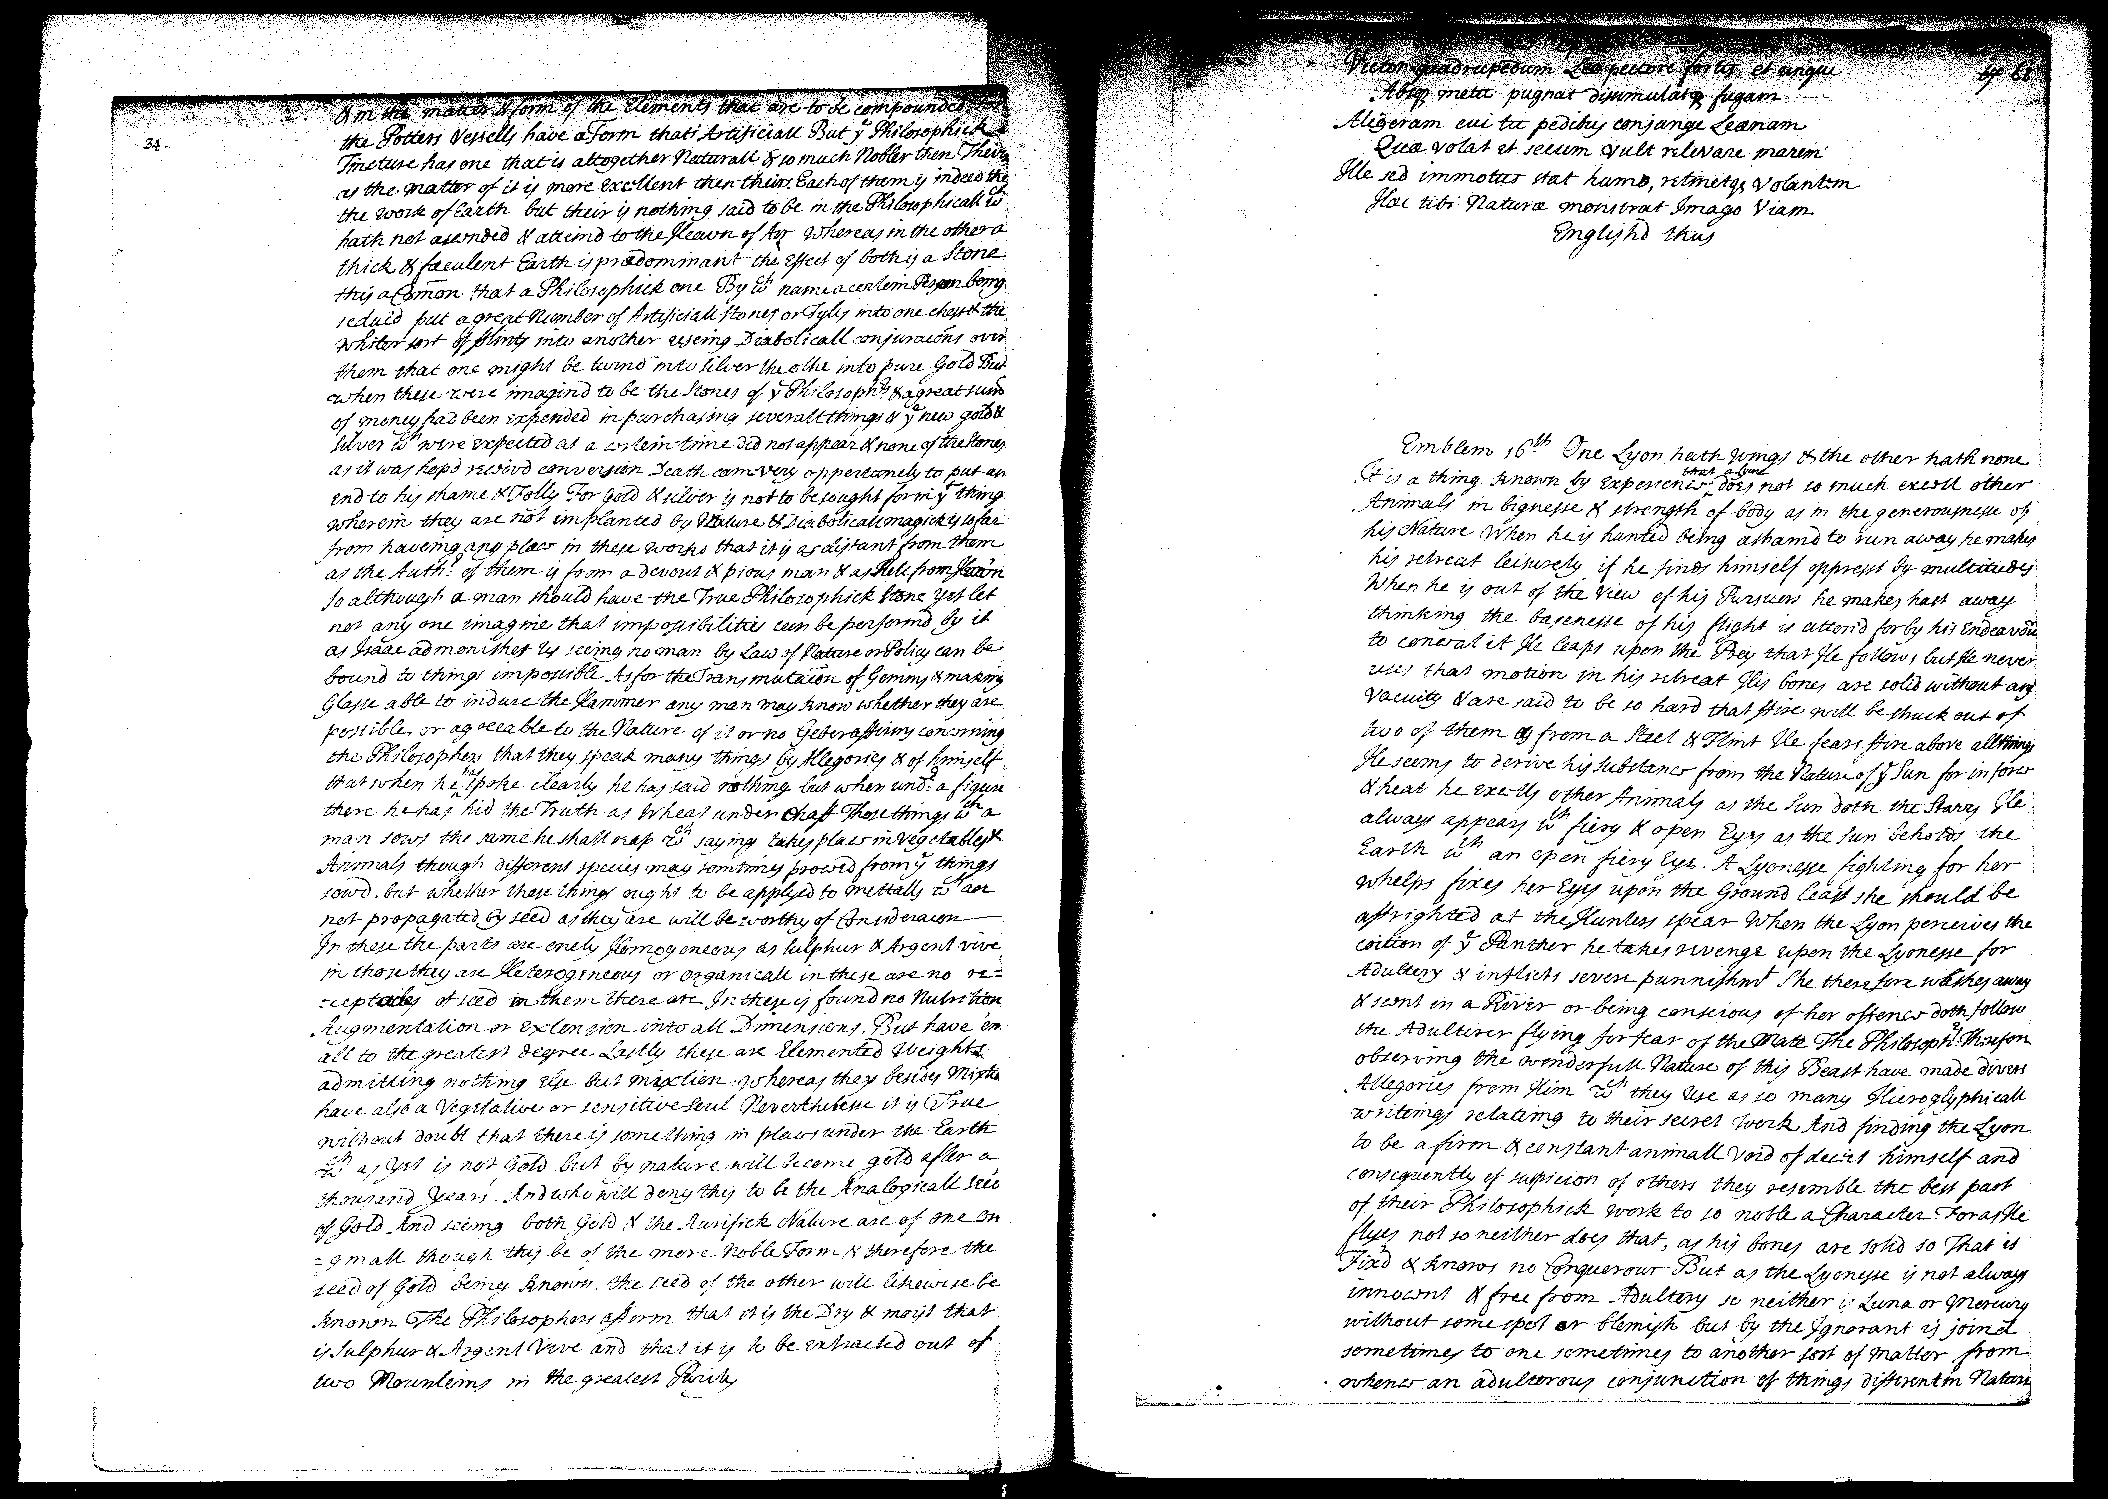 34
& in the matter & form of the Elements that are to be compounded
the Potters Vessells have a Form thats Artificiall But yͤ Philosophick
Tincture has one that is altogether Naturall & so much Nobler then Theirs
as the matter of it is more excellent then theirs Each of them is indeed the
the work of Earth but their is nothing said to be in the Philosophicall wͨʰ
hath not ascended & attaind to the Heavn of Air whereas in the other a
thick & fæculent Earth is prædominant the Effect of both is a Stone
this a Com̄on that a Philosophick one By wͨʰ name a certein Person being
seducd put a great Number of Artificiall Stones or Tyles into one chest & the
whiter sort of flints into another useing Diabolicall conjuracōns over
them that one might be turnd into silver the othe into pure Gold But
when these were imagind to be the Stones of yͤ Philosophʳˢ & a great sum̄
of money had been expended in purchasing severall things & yͤ new gold &
silver wͨʰ were expected at a certein time did not appear & none of the Stones
as it was hopd receivd conversion Death cam very oppertunely to put an
end to his shame & Folly For gold & silver is not to be sought for in yͤ thing
wherein they are not implanted by Nature & Diabolicall magick is so far
from haveing any place in these works that it is as distant from them
as the Authʳ. of them is from a devout & pious man & as Hell from Heavn
so although a man should have the True Philosophick Stone yet let
not any one imagine that impossibilities can be performd by it
as Isaac admonishes Us seeing no man by Law of Nature or Policy can be
bound to things impossible As for the Transmutacōn of Gemms & making
Glasse able to indure the Hammer any man may know whether they are
possible or agreeable to the Nature of it or no Geber affirms concerning
the Philosophers that they speak many things by Allegories & of himself
that when he has spoke clearly he has said nothing but when undʳ a figure
there he has hid the Truth as Wheat under Chaff Those things wͨʰ a
man sows the same he shall reap wͨʰ saying takes place in Vegetables &
Animals though different species may somtimes proceed from yͤ things
sowd. but whether these things ought to be applyed to mettalls wͨʰ are
not propagated by seed as they are will be worthy of Consideracōn
In these the parts are onely Homogeneous as Sulphur & Argent vive
in those they are Heterogineous or organicall in these are no re=
=ceptacles of seed in them there are In these is found no Nutrition
Augmentation or extension into all Dimensions. But have 'em
all to the greatest degree Lastly these are Elemented Weights
admitting nothing else but mixtion whereas they besides Mixtio
have also a Vegetative or sensitive Soul Neverthelesse it is True
without doubt that there is something in places under the Earth
wͨʰ as yet is not Gold but by nature will become gold after a
thousand years. And who will deny this to be the Analogicall seed
of Gold And seeing both Gold & the Aurifick Nature are of one ori
=ginall though this be of the more Noble Form & therefore the
seed of Gold being Known. the seed of the other will likewise be
known The Philosophers affirm that it is the Dry & moist that
is Sulphur & Argent Vive and that it is to be extracted out of
two Mounteins in the greatest Purity
Victor quadrupedum Leo pectore fortis et ungue
Absqꝫ metu pugnat dissimulatqꝫ fugam
Aligeram cui tu pedibus conjunge Leænam
Quæ volat et secum vult relevare marem
Ille sed immotus stat humo, retinetqꝫ Volantem
Hæc tibi Naturæ monstrat Imago Viam
English'd thus
Emblem 16ᵗʰ One Lyon hath Wings & the other hath none
It is a thing known by experience that a Lyon does not so much excell other
Animals in bignesse & strength of body as in the generousnesse of
his Nature When he is hunted being ashamd to run away he makes
his retreat leisurely if he finds himself opprest by multitudes
When he is out of the view of his Pursuers he makes hast away
thinking the basenesse of his flight is attond for by his Endeavoʳ
to conceal it He leaps upon the Prey that He follows but He never
uses that motion in his retreat His bones are solid without any
vacuity & are said to be so hard that fire will be struck out of
two of them as from a Steel & Flint He fears fire above all things
He seems to derive his substance from the Nature of yͤ Sun for in force
& heat he excells other Animals as the Sun doth the Starrs He
always appears wᵗʰ fiery & open Eyes as the Sun beholds the
Earth wᵗʰ an open fiery Eye. A Lyonesse fighting for her
whelps fixes her Eyes upon the Ground least she should be
affrighted at the Hunters spear When the Lyon perceives the
coition of yͤ Panther he takes revenge upon the Lyonesse for
Adultery & inflicts severe punnishmᵗ She therefore washes away
& scent in a River or being conscious of her offence doth follow
the Adulterer flying for fear of the Mate The Philosophʳˢ. Therefore
observing the wonderfull Nature of this Beast have made divers
Allegories from Him wͨʰ they Use as so many Hieroglyphicall
writings relating to their secret Work And finding the Lyon
to be a firm & constant animall void of deceit himself and
consequently of suspicion of others they resemble the best part
of their Philosophick work to so noble a Character For as He
flyes not so neither does that, as his bones are solid so That is
Fix'd & knows no Conquerour But as the Lyonesse is not always
innocent & free from Adultery so neither is Luna or Mercury
without some spot or blemish but by the Ignorant is joind
sometimes to one sometimes to another sort of matter from
whence an adulterous conjunction of things different in Nature